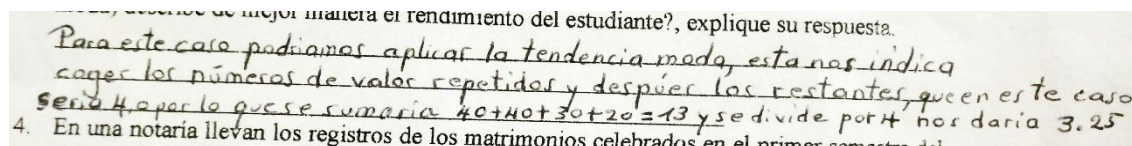 describe de mejor manera el rendimiento del estudiante?, explique su respuesta.
Para este caso podriamos aplicar la tendencia moda, esta nos indica
coger los números de valor repetidos y despúes los restantes, que en este caso
seria 4,0 por lo que se sumaria 40+40+30+20=13 y se divide por 4 nos daria 3.25
4. En una notaría llevan los registros de los matrimonios celebrados en el primer